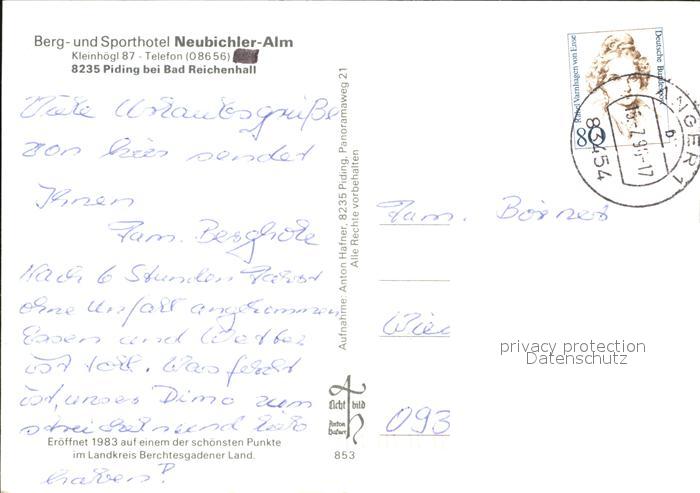 Berg- und Sporthotel Neubichler-Alm
Kleinhögl 87 - Telefon (08656)
8235 Piding bei Bad Reichenhall
Viele Urlaubsgrüße
von hier sendet
Ihnen
Fam. Berghole
Nach 6 Stunden Fahrt
ohne Unfall angekommen
Essen und Wetter
ist toll. Was fehlt
ist, unser Dimo zum
streicheln und lieb
haben!
Eröffnet 1983 auf einem der schönsten Punkte
im Landkreis Berchtesgadener Land.
Aufnahme: Anton Hafner, 8235 Piding, Panoramaweg 21
Alle Rechte vorbehalten
Licht bild
Anton Hafner
853
Rahel Varnhagen von Ense
Deutsche Bundespost
80
83454
NGER 1
b
-17
Fam. Börner
Wien
093
privacy protection
Datenschutz